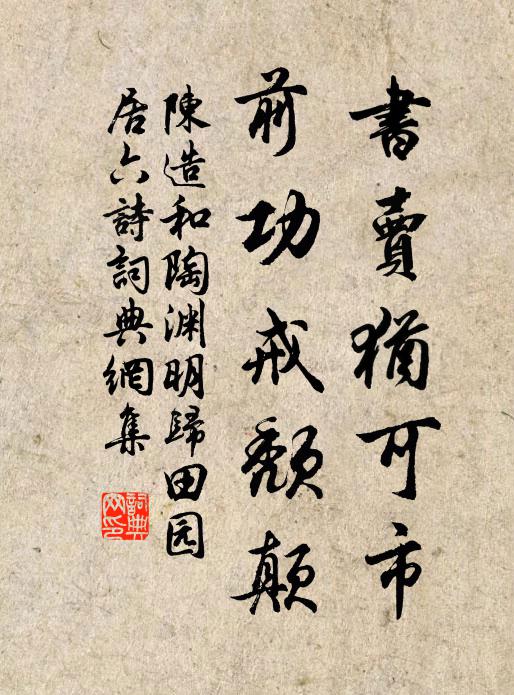 書賣猶可市
前功戒頹顛
陳造和陶渊明歸田园
居六詩詞典網集
詞典网印